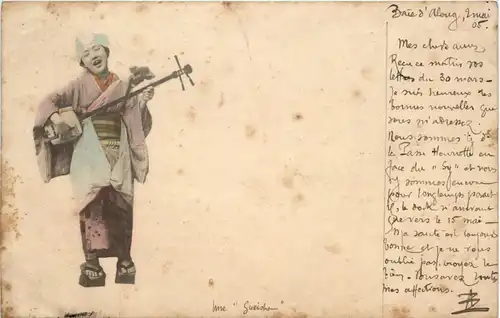 Baie d'Along, 2 mai
05.
Mes chers amis
Reçu ce matin vos
lettres du 30 mars —
Je suis heureux des
bonnes nouvelles que
vous m'adressez.
Nous sommes à
la Passe Henriette en
face du "Sy" et nous
y sommes encore
pour longtemps paraît
il, le dock n'arrivant
que vers le 15 mai —
Ma santé est toujours
bonne et je ne vous
oublie pas, croyez le
bien. Vous avez toutes
mes affections.
une "Gueisha"